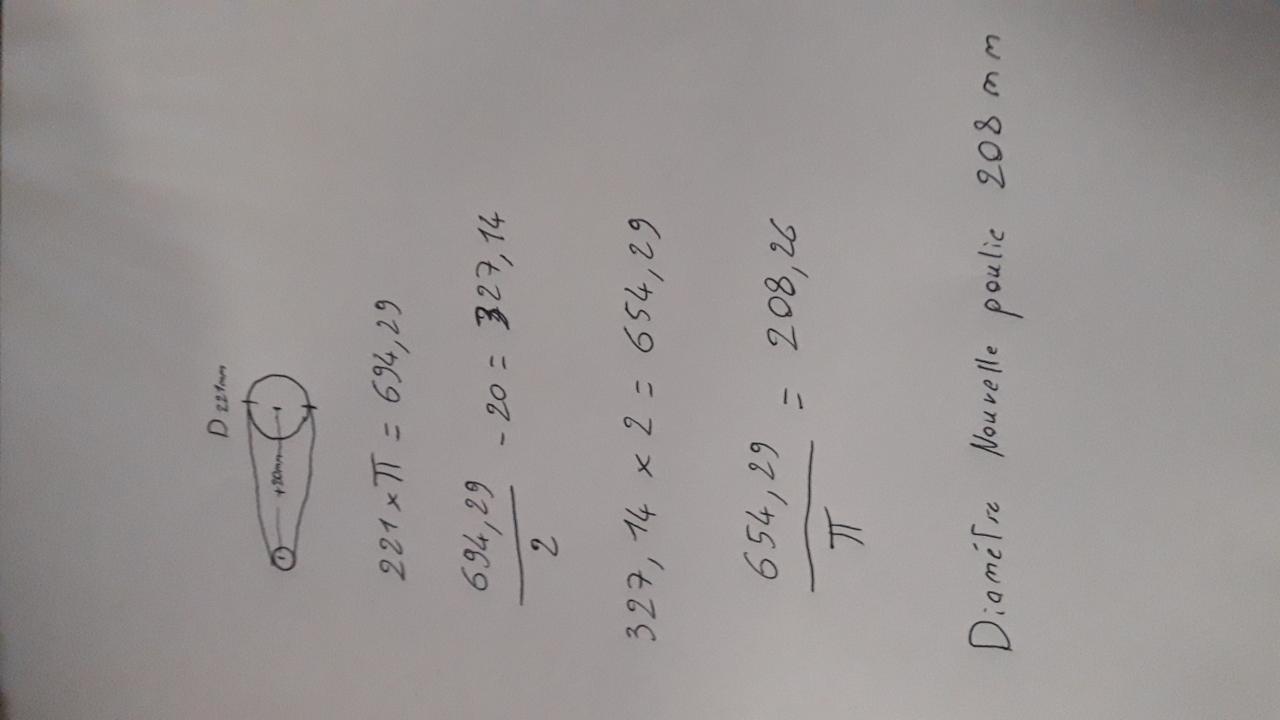 D 221mm
+20mm
221 x π = 694,29
694,29
2
- 20 = 327,14
327, 14 x 2 = 654,29
654,29
π
= 208,26
Diamétre Nouvelle poulie 208 mm